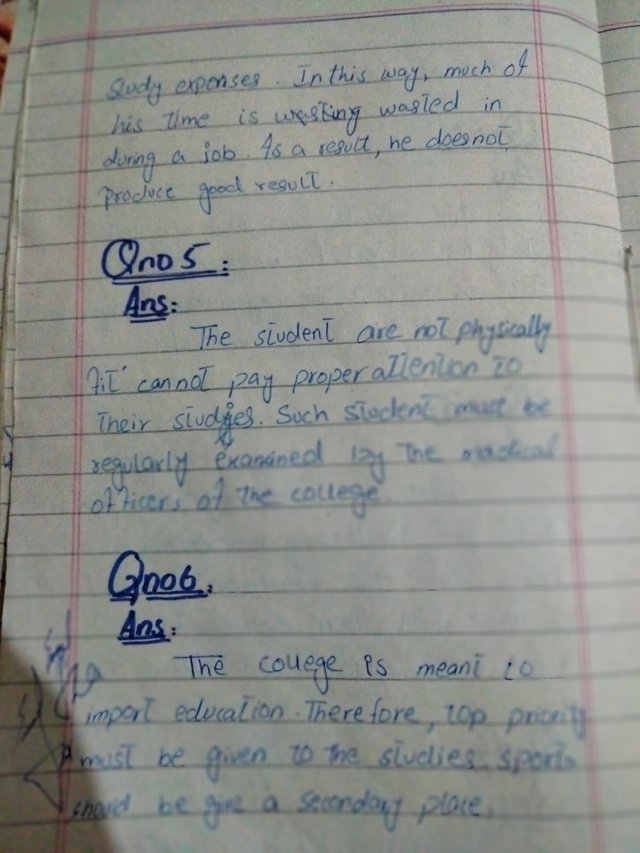 Study expenses. In this way, much of
his time is wasting wasted in
during a job. As a result, he doesnot
produce good result.
Qno 5:
Ans:
The student are not physically
fit cannot pay proper attention to
their studies. Such student must be
regularly examined by the medical
officers of the college.
Qno6.
Ans:
The college is meant to
import education. Therefore, top priority
must be given to the studies. sports
should be give a secondary place.